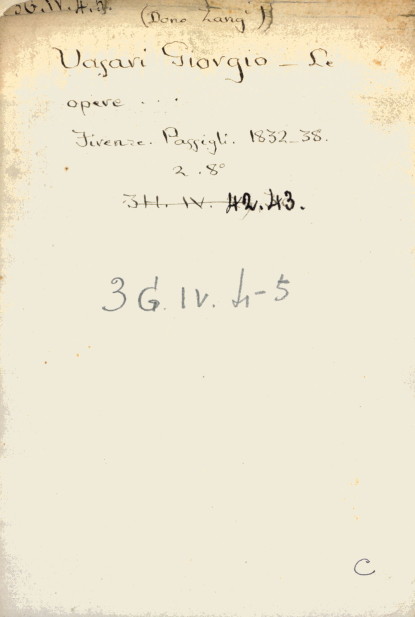 3G.IV.4.5.
(Dono Zangi)
Vasari Giorgio — Le
opere . . .
Firenze. Passigli. 1832-38.
2. 8°
3H. IV. 42.43.
3 G. IV. 4-5
C